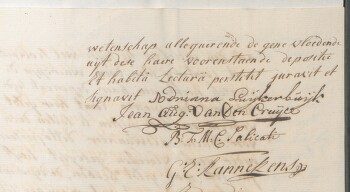 wetenschap allequerende de gene vloeidende
uyt dese haere voorenstaende depositie
et habita Lectura perstitit juravit et
signavit Adriana Luykerbuyk
Jean Aug. Van Den Cruyce
B. F. M. C. Salicati
G. E. Kannekens